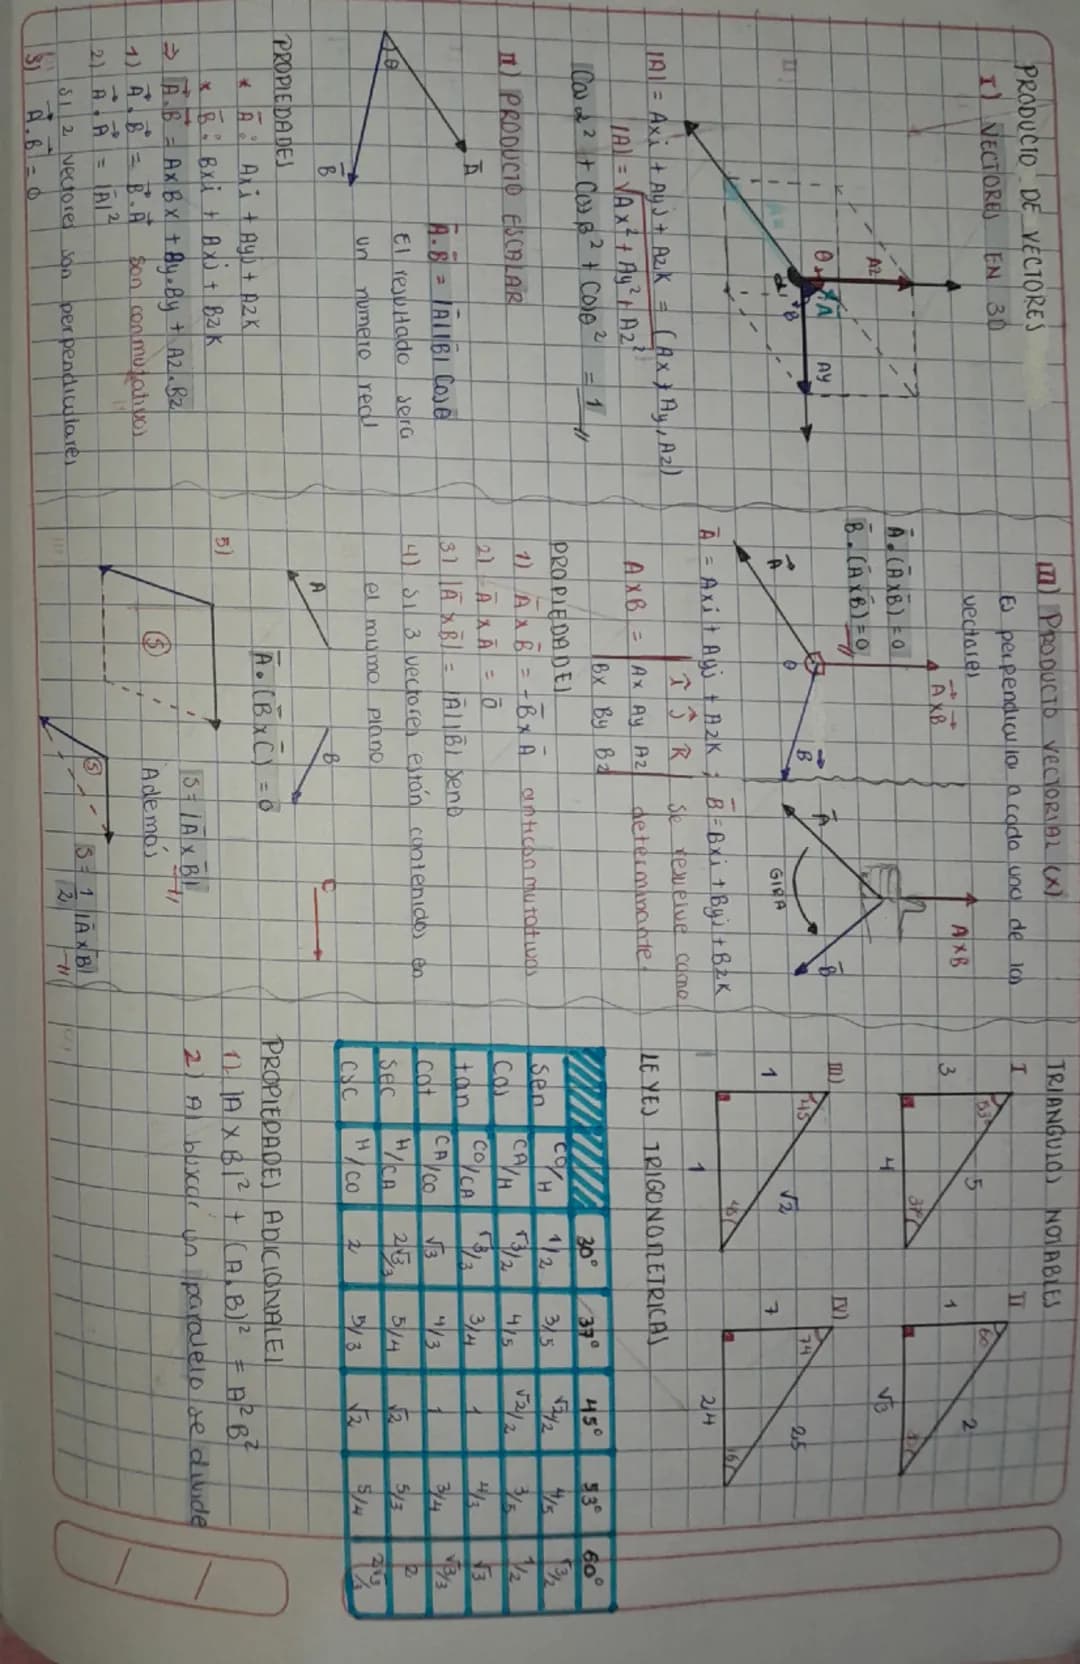 PRODUCTO DE VECTORES
I) VECTORES EN 3D
Az
θ
A
α
B
Ay
|A| = Axi + Ayj + Azk = (Ax, Ay, Az)
|A| = √Ax² + Ay² + Az²
Cos α² + Cos β² + Cos θ² = 1
II) PRODUCTO ESCALAR
A
θ
B
A.B = |A||B| Cos θ
El resultado sera
un numero real
PROPIEDADES
* A: Axi + Ayj + Azk
* B: Bxi + Axj + Bzk
⇒ A.B = AxBx + By.By + Az.Bz
1) A.B = B.A son conmutativos
2) A.A = |A|²
Si 2 vectores son perpendiculares
3) A.B = 0
III) PRODUCTO VECTORIAL (x)
Es perpendicular a cada uno de los
vectores
A.(AxB) = 0
B.(AxB) = 0
AxB
A
θ
B
AxB
A
GIRA
B
A = Axi + Ayj + Azk ; B = Bxi + Byj + Bzk
AxB = | i j k |
Ax Ay Az
Bx By Bz
Se resuelve como
determinante.
PROPIEDADES
1) AxB = -BxA anticonmutativas
2) AxA = 0
3) |AxB| = |A||B| senθ
4) Si 3 vectores están contenidos en
el mismo plano
A
B
C
A.(BxC) = 0
5)
S
S = |AxB|
Además
S
S = 1/2 |AxB|
TRIANGULOS NOTABLES
I
53°
3
5
4
37°
II
60
1
2
√3
III)
45
1
√2
1
45
IV)
74
7
25
24
16
LEYES TRIGONOMETRICAS
30° 37° 45° 53° 60°
sen CO/H 1/2 3/5 √2/2 4/5 √3/2
Cos CA/H √3/2 4/5 √2/2 3/5 1/2
tan CO/CA √3/3 3/4 1 4/3 √3
Cot CA/CO √3 4/3 1 3/4 √3/3
Sec H/CA 2√3/3 5/4 √2 5/3 2
CSC H/CO 2 5/3 √2 5/4 2√3/3
PROPIEDADES ADICIONALES
1) |AxB|² + (A.B)² = A²B²
2) Al buscar un paralelo se divide